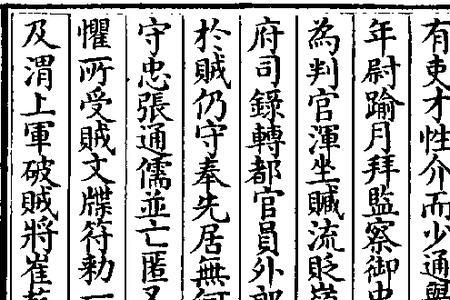 有吏才性介而少通
年尉踰月拜監察御史
為判官渾坐贓流貶嶺
府司錄轉都官員外郎
於賊仍守奉先居無何
守忠張通儒並亡匿又
懼所受賊文牒符勑一
及渭上軍破賊將崔乾